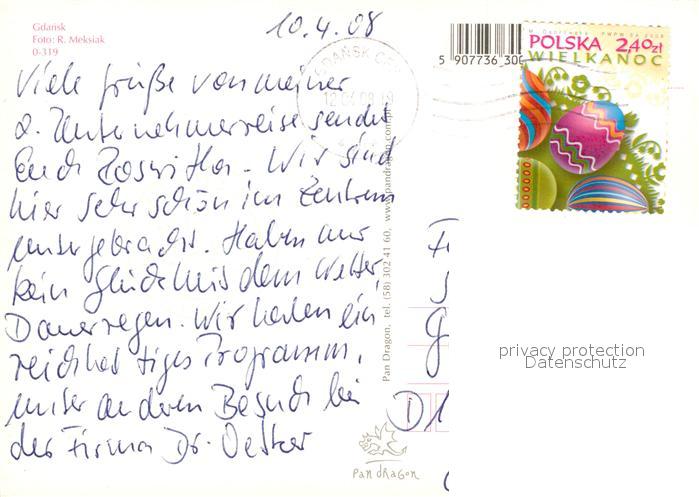 Gdańsk
Foto: R. Meksiak
0-319
10.4.08
5 907736 300
M. Dobrowolska PWPW SA 2008
POLSKA 2,40 zł
WIELKANOC
GDAŃSK
12.04.08
Viele Grüße von meiner
2. Unternehmerreise sendet
Euch Roswitha. Wir sind
hier sehr schön im Zentrum
untergebracht. Haben nur
kein Glück mit dem Wetter,
Dauerregen. Wir haben ein
reichhaltiges Programm,
unter anderem Besuch bei
der Firma Dr. Oetker
Pan Dragon, tel. (58) 302 41 60, www.pandragon.com.pl
D1
pan dragon
privacy protection
Datenschutz